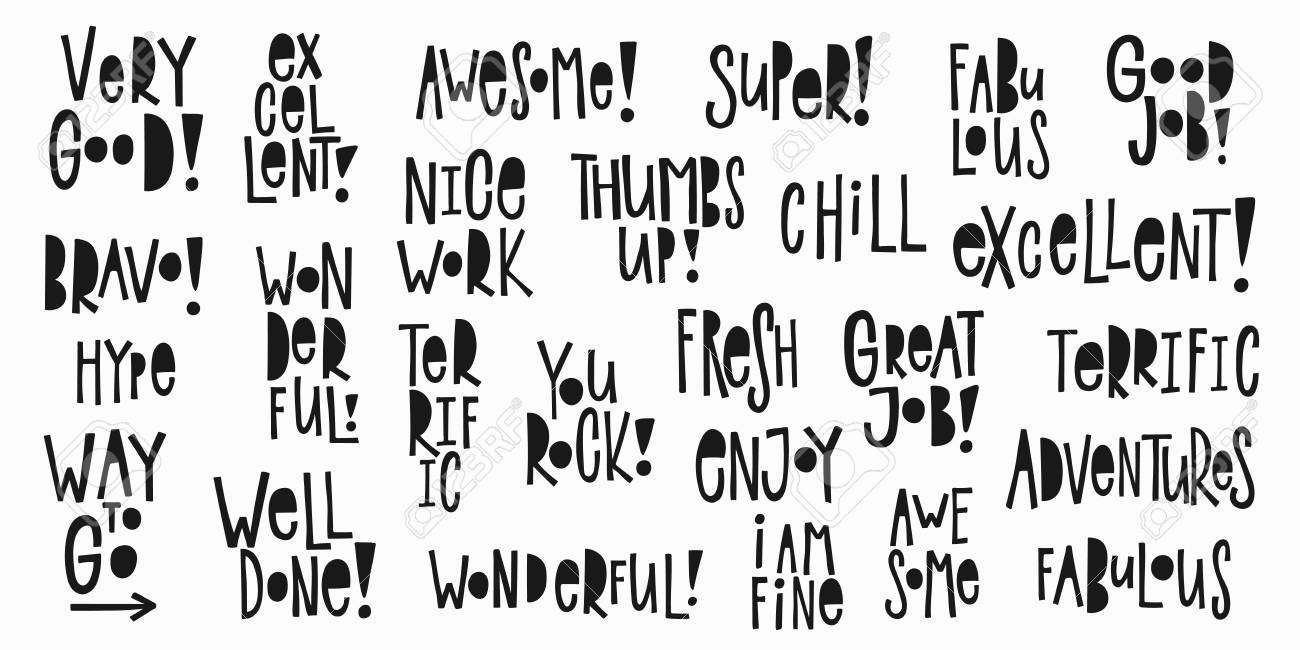 VeRY
GOOD!
eX
CeL
LeNT!
AWeSOMe!
SUPeR!
FABU
LOUS
GOOD
JOB!
NICe
WORK
THUMBS
UP!
CHiLL
eXCeLLeNT!
BRAVO!
WON
DeR
FUL!
HYPe
TeR
RIF
IC
YOU
ROCK!
FReSH
GReAT
JOB!
TeRRIFIC
WAY
TO
GO
WeLL
DONe!
WONDeRFUL!
eNJOY
i AM
FiNe
AWE
SOMe
ADVeNTUReS
FABuLOUS
123RF
123RF
123RF
123RF